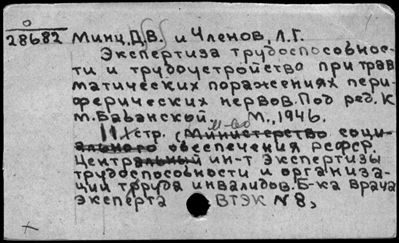 28682 Минц, Д.В. и Членов, Л.Г.
Экспертиза трудоспособнос-
ти и трудоустройство при трав
матических поражениях пери-
ферических нервов. Под ред. К
М. Баванской М., 1946.
стр. (Министерство соци-
ального обеспечения РСФСР.
Центральный ин-т Экспертизы
трудоспособности и организа-
ции труда инвалидов. Б-ка врача
эксперта ВТЭК №8,